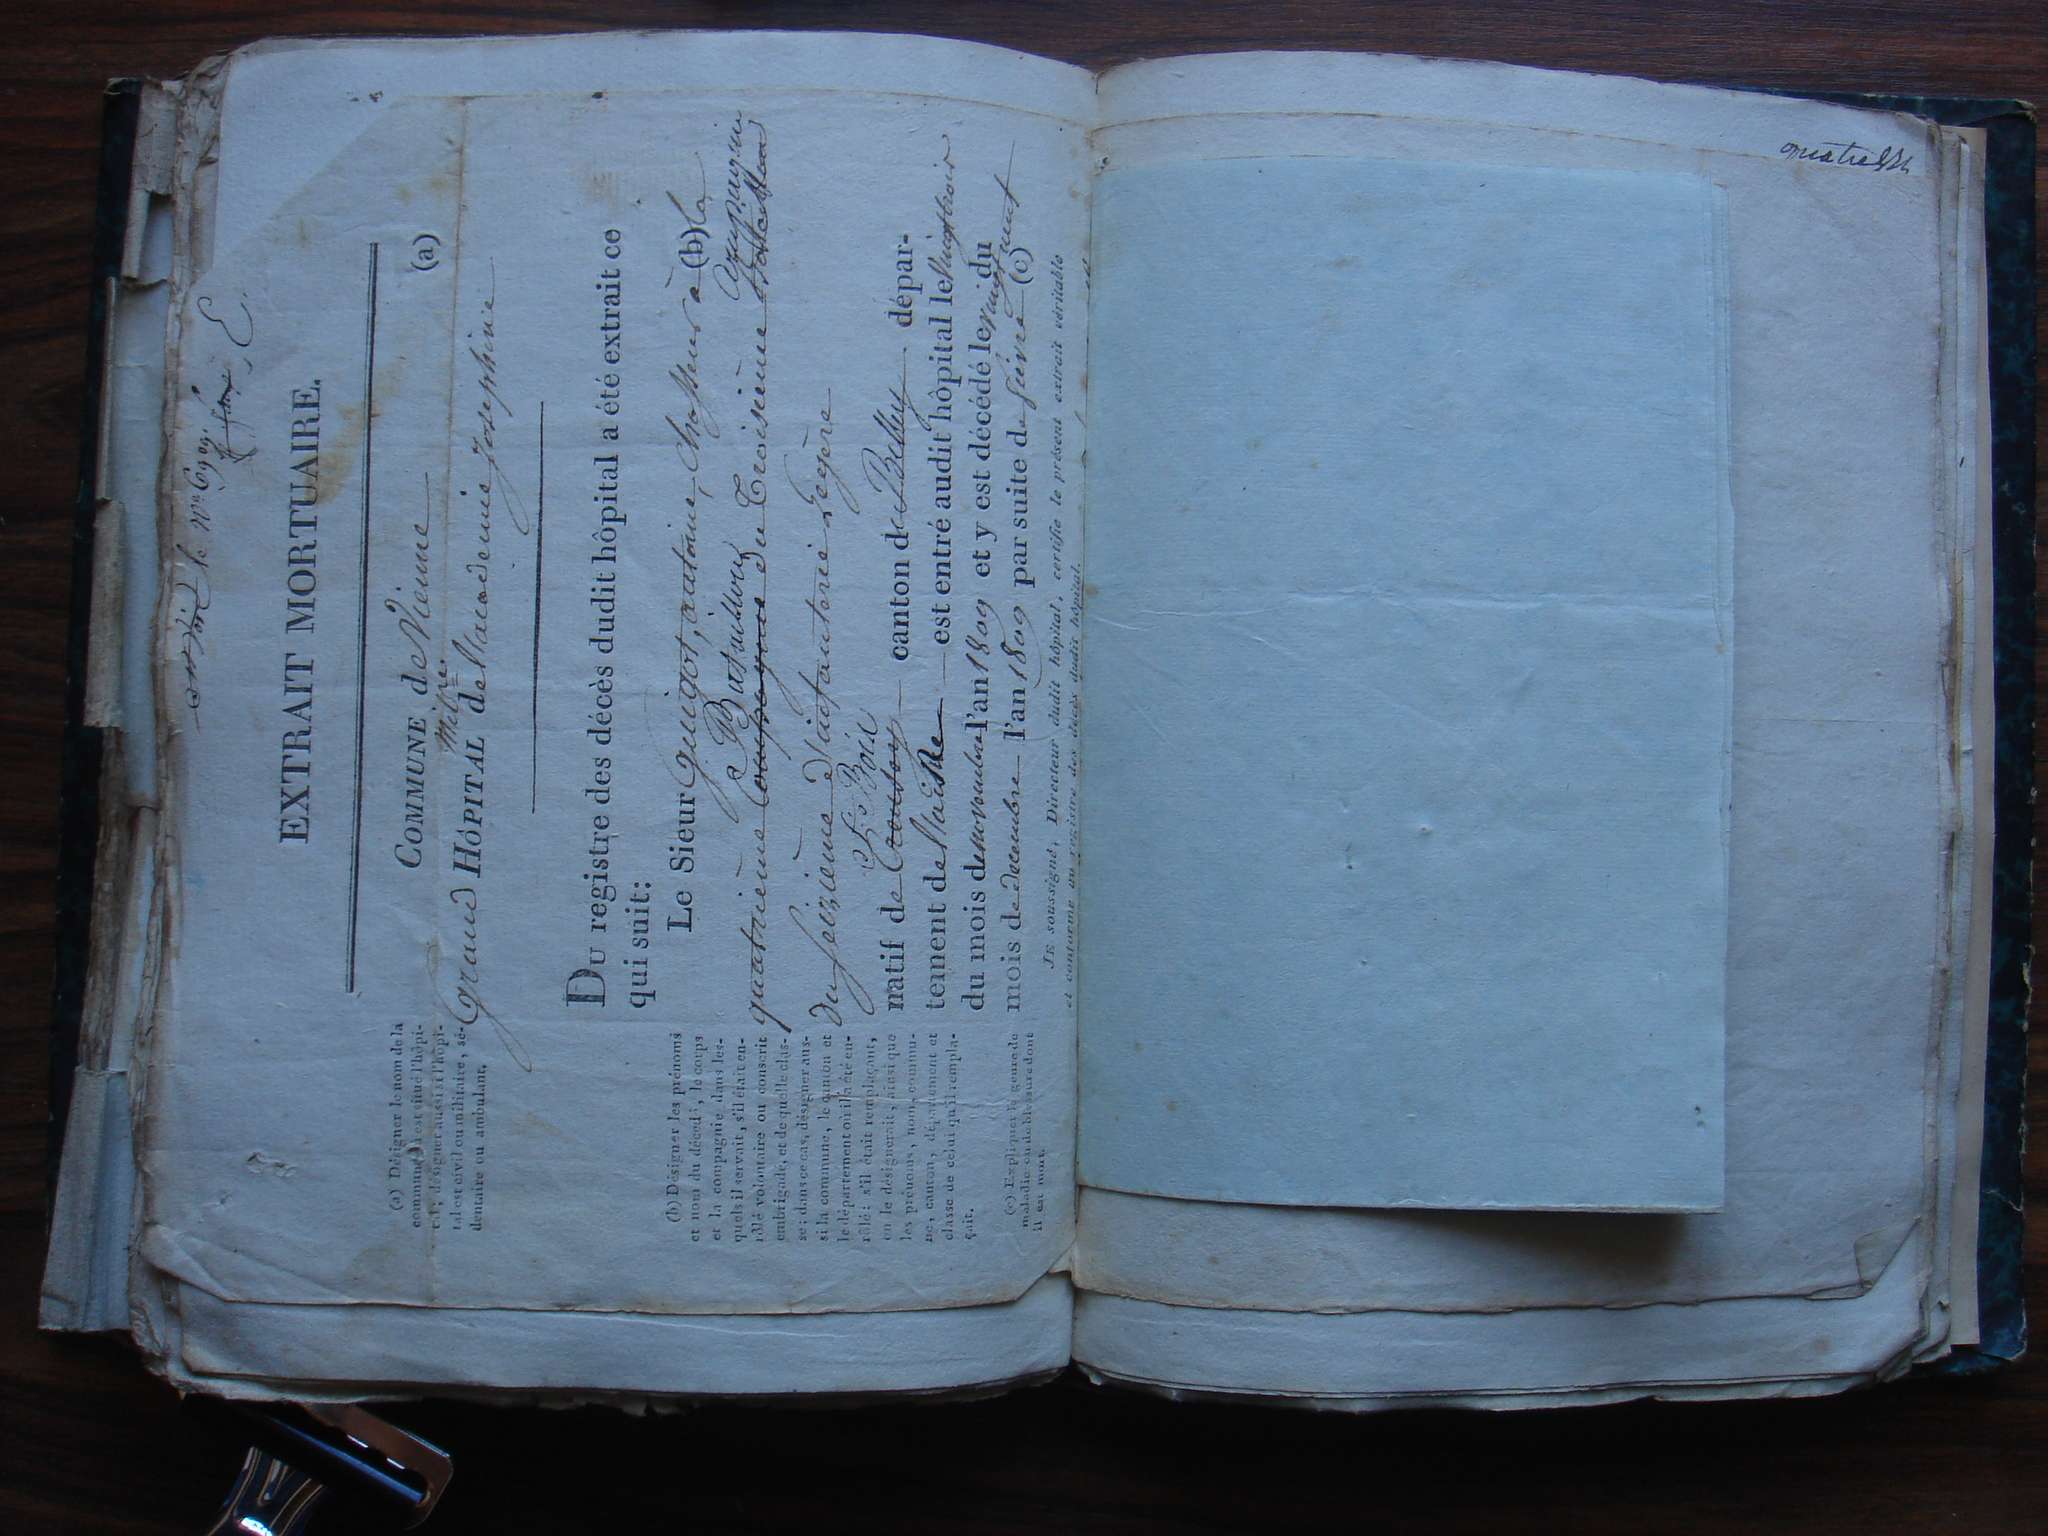 Voir le No 6909.
EXTRAIT MORTUAIRE.
COMMUNE de Vienne (a)
Milre
Grand HÔPITAL de l'académie Josephine
(a) Désigner le nom de la
commune où est situé l'hôpi-
tal; désigner aussi si l'hôpi-
tal est civil ou militaire, sé-
dentaire ou ambulant.
DU registre des décès dudit hôpital a été extrait ce
qui suit:
Le Sieur Guigot, antoine, Chasseur à (b) la
quatrième compagne du Troisième Bataillon
Compagnie
du Seizième d'infanterie Légère
natif de canton de Belley dépar-
tement de est entré audit hôpital le vingt trois
du mois de novembre l'an 1809 et y est décédé le vingt du
mois de decembre l'an 1809 par suite de fièvre (c)
(b) Désigner les prénoms
et nom du décédé; le corps
et la compagnie dans les-
quels il servait, s'il était en-
rôlé volontaire ou conscrit
embrigadé, et de quelle clas-
se: dans ce cas, désigner aus-
si la commune, le canton et
le département où il a été en-
rôlé: s'il était remplaçant,
on le désignerait, ainsi que
les prénoms, nom, commu-
ne, canton, département et
classe de celui qu'il rempla-
çait.
(c) Expliquer le genre de
maladie ou de blessure dont
il est mort.
JE soussigné, Directeur dudit hôpital, certifie le présent extrait véritable
et conforme au registre des décès dudit hôpital.